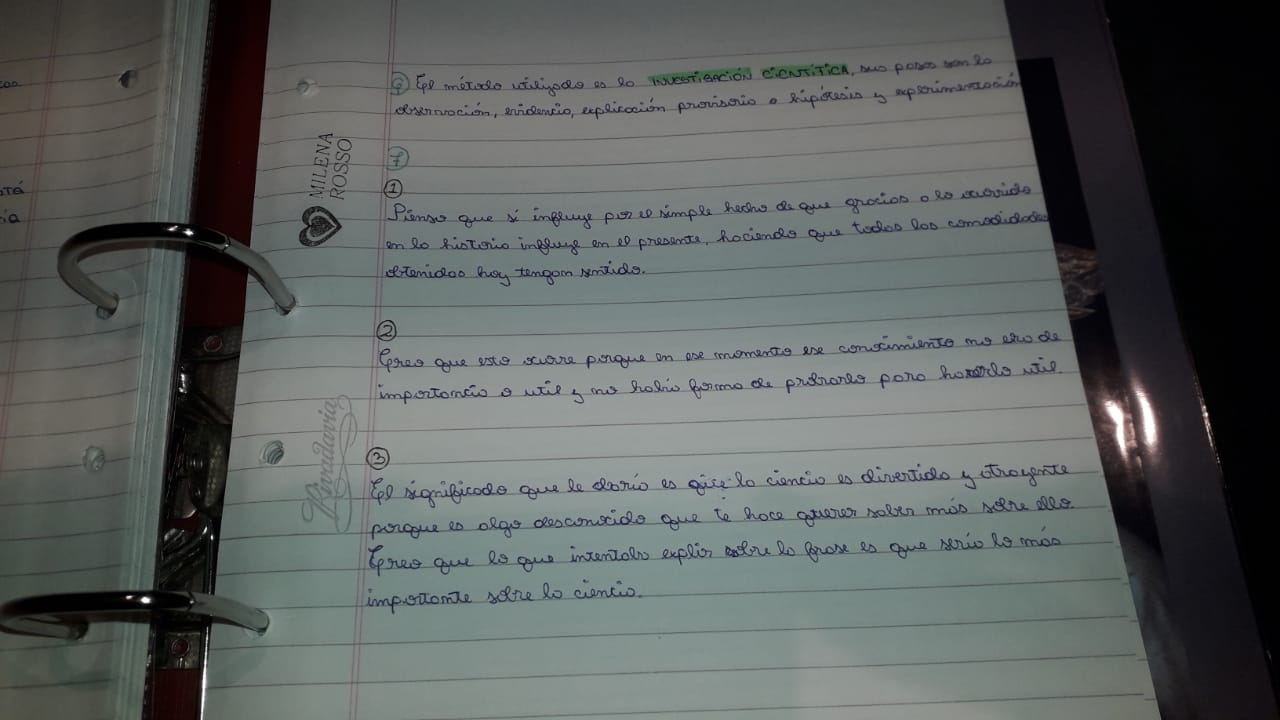 cas
stá
ia
MILENA
ROSSO
Rivadavia
6 El método utilizado es la INVESTIGACIÓN CIENTÍFICA, sus pasos son la
observación, evidencia, explicación provisoria o hipótesis y experimentación
7
1
Pienso que sí influye por el simple hecho de que gracias a lo ocurrido
en la historia influye en el presente, haciendo que todas las comodidades
obtenidas hoy tengan sentido.
2
Creo que esto ocurre porque en ese momento ese conocimiento no era de
importancia o util y no había forma de probarlo para hacerlo util.
3
El significado que le daría es que la ciencia es divertida y atrayente
porque es algo desconocido que te hace querer saber más sobre ello.
Creo que lo que intentaba explir sobre la frase es que sería lo más
importante sobre la ciencia.